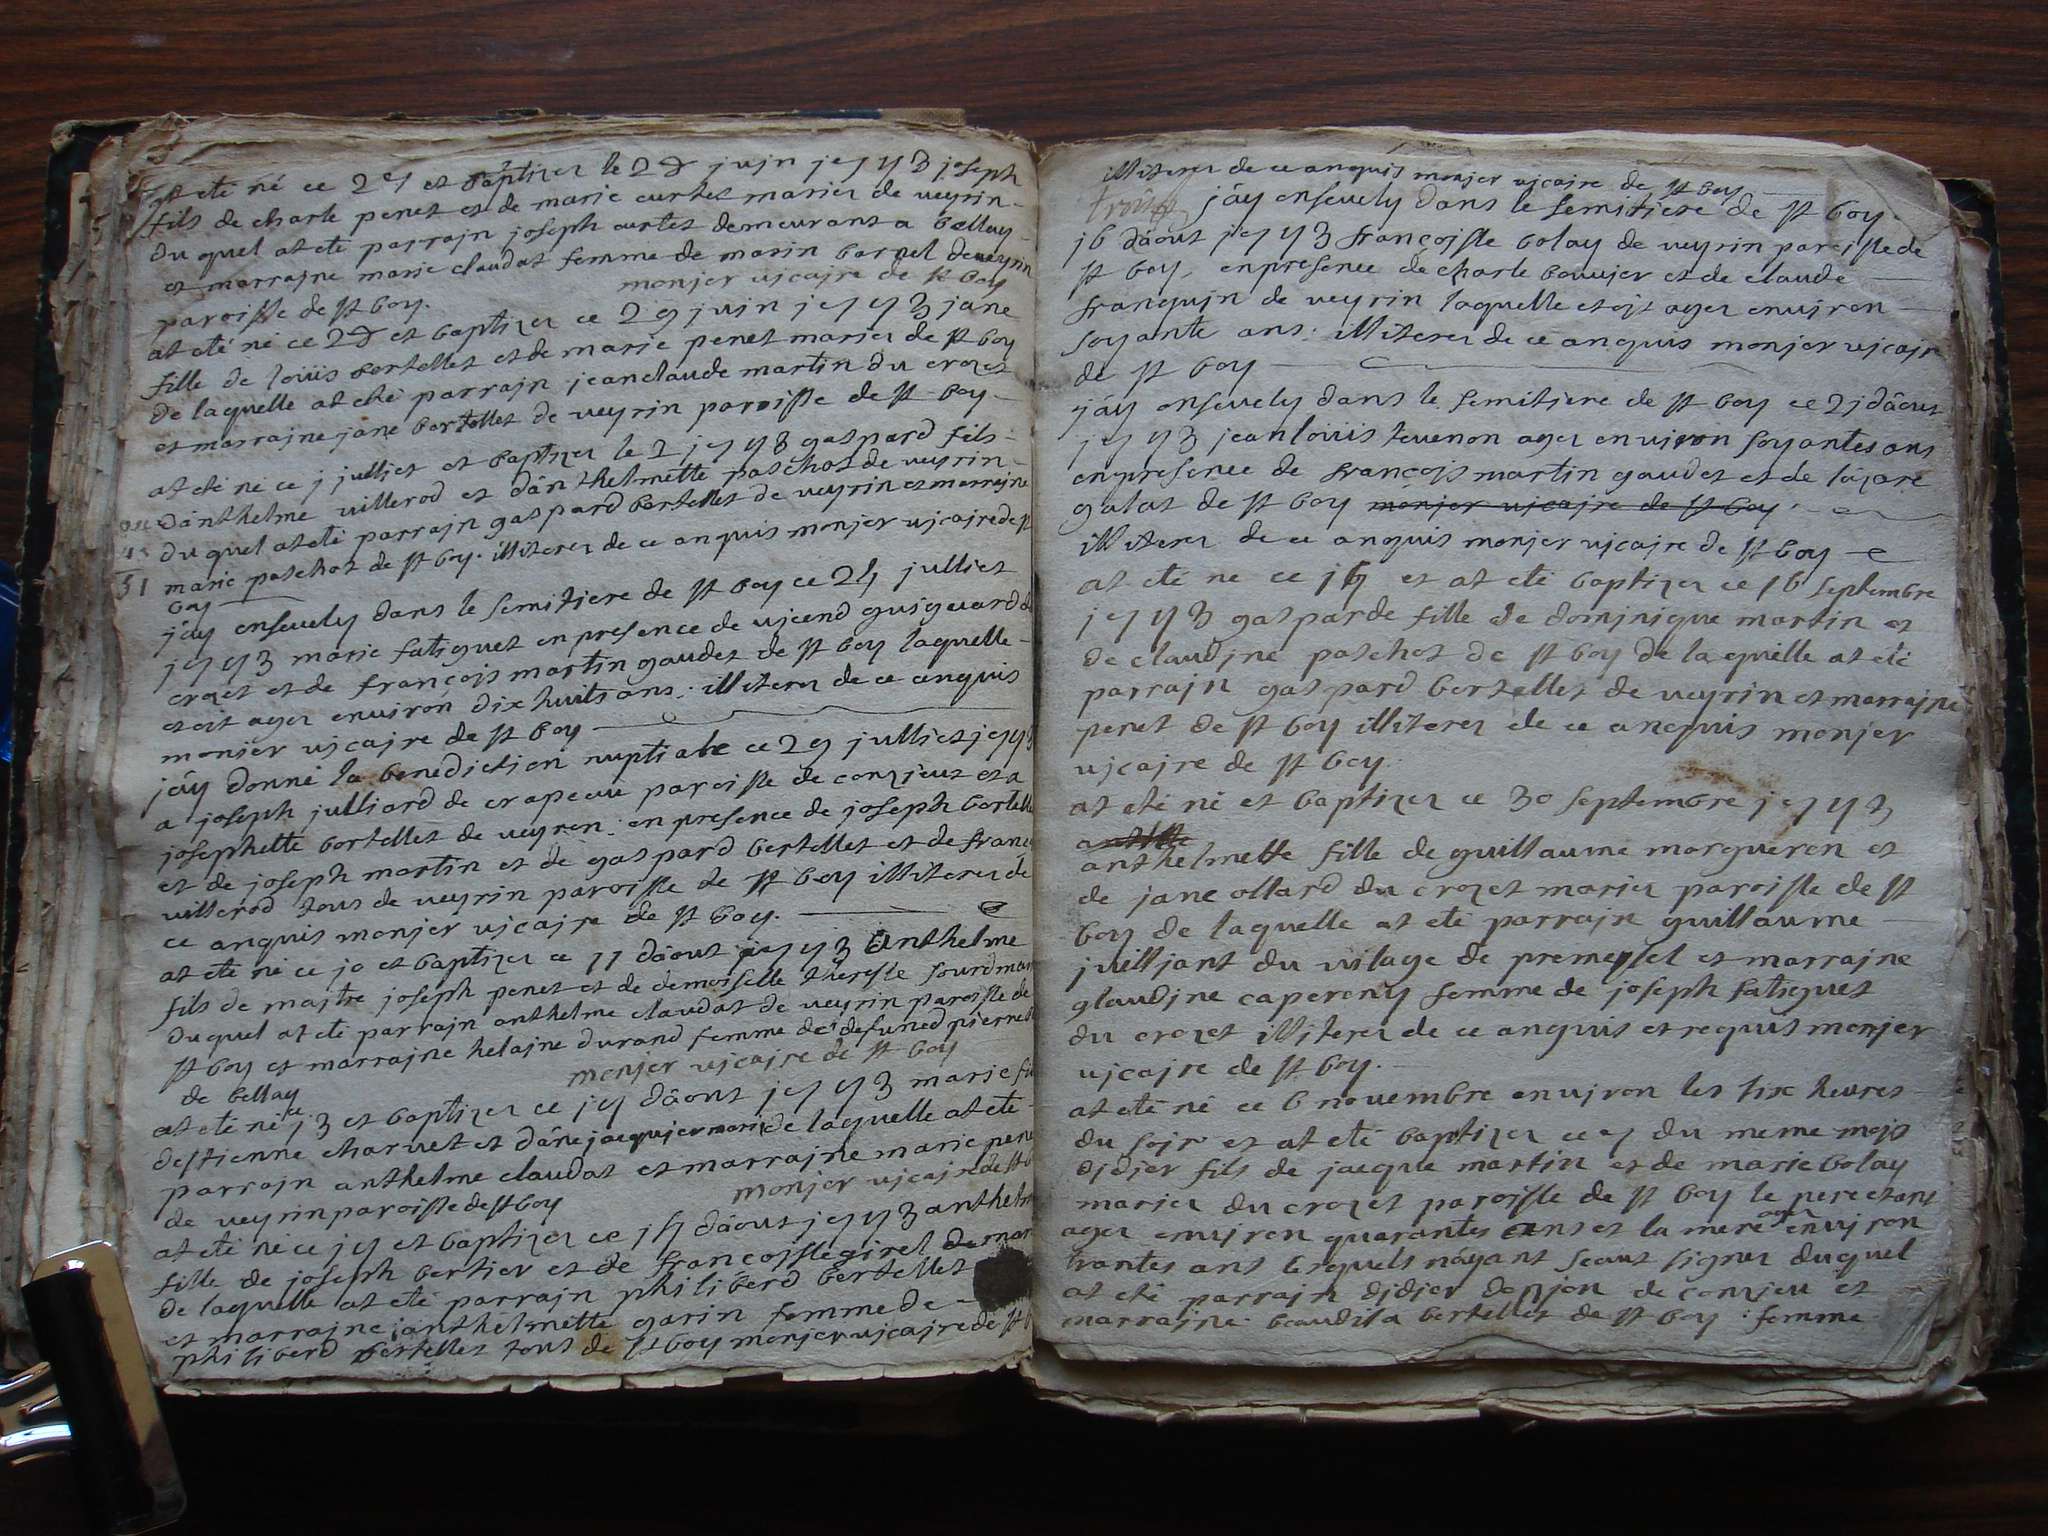 at eté né ce 27 et baptizer le 28 juin 1773 joseph
fils de charle penet et de marie curtet marier de veyrin
du quel at eté parrajn joseph curtet demeurant a bellay
et marrajne marie claudat femme de marin bornel de veyrin
paroisse de st boy. monjer vjcajre de st boy
at eté né ce 28 et baptizer ce 29 juin 1773 jane
fille de loüis bertellet et de marie penet marier de st boy
de laquelle at eté parrajn jeanclaude martin du crozet
et marrajne jane bertellet de veyrin paroisse de st boy
at eté né ce j julliet et baptizer le 2 1773 gaspard fils
dânthelme villerod et dânthelmette paschot de veyrin
du quel at eté parrajn gaspard bertellet de veyrin et marrajne
marie paschot de st boy. illiterer de ce anquis monjer vjcajre de st
boy
51
j'ây ensevely dans le semitjere de st boy ce 24 julliet
1773 marie fatiguet en presence de vjcend guigeuard du
crozet et de françojs martin gaudet de st boy laquelle
etoit ager environ dix huits ans. illiterer de ce anquis
monjer vjcajre de st boy
j'ây donné la benediction nuptiale ce 29 julliet 1773
a joseph julliard de crapeau paroisse de conzieux et a
josephette bertellet de veyren: en presence de joseph bertelle
et de joseph martin et de gaspard bertellet et de franc
villerod tous de veyrin paroisse de st boy illiterer de
ce anquis monjer vjcajre de st boy.
at eté né ce jo et baptizer ce 11 dâout 1773 anthelme
fils de majtre joseph penet et de demoiselle theresse sourdman
duquel at eté parrajn anthelme claudat de veyrin paroisse de
st boy et marrajne helajne durand femme de defuned pierre
de bellay monjer vjcajre de st boy
at eté né ce j3 et baptizer ce j4 dâout 1773 marie fi
destienne charvet et dâne jacqujer marier de laquelle at eté
parrajn anthelme claudat et marrajne marie pene
de veyrin paroisse de st boy monjer vjcajre de st b
at eté né ce j4 et baptizer ce j5 dâout 1773 anthelm
fille de joseph bertier et de françojsse girel de mar
de laquelle at eté parrajn philiberd bertellet
et marrajne anthelmette garin femme de
philiberd bertellet tous de st boy monjer vjcajre de st b
illiterer de ce anquis monjer vjcajre de st boy
j'ây ensevely dans le semitjere de st boy
j6 dâout 1773 françojsse bolay de veyrin paroisse de
st boy, en presence de charle bouvjer et de claude
franquin de veyrin laquelle etojt ager environ
soyante ans: illiterer de ce anquis monjer vjcajre
de st boy
j'ây ensevely dans le semitjere de st boy ce 2j dâout
1773 jean loüis tevenon ager environ soyantes ans
en presence de françojs martin gaudet et de lâzare
galat de st boy monjer vjcajre de st boy
illiterer de ce anquis monjer vjcajre de st boy
at eté né ce j5 et at eté baptizer ce 16 septembre
1773 gasparde fille de dominique martin et
de claudjne paschot de st boy de laquelle at eté
parrajn gaspard bertellet de veyrin et marrajne
penet de st boy illiterer de ce anquis monjer
vjcajre de st boy.
at eté né et baptizer ce 30 septembre 1773
anthelmette fille de guillaume margueron et
de jane ollard du crozet marier paroisse de st
boy de laquelle at eté parrajn guillaume
juilljant du vilage de premeysel et marrajne
glaudjne caperony femme de joseph fatiguet
du crozet illiterer de ce anquis et requis monjer
vjcajre de st boy.
at eté né ce 6 novembre environ les six heures
du sojr et at eté baptizer ce 7 du meme mojs
didjer fils de jacque martin et de marie bolay
marier du crozet paroisse de st boy le pere etant
ager environ quarantes ans et la mere ager environ
trantes ans lesquels nâyant sceut signer duquel
at eté parrajn didjer donjon de conzieu et
marrajne beaudila bertellet de st boy femme